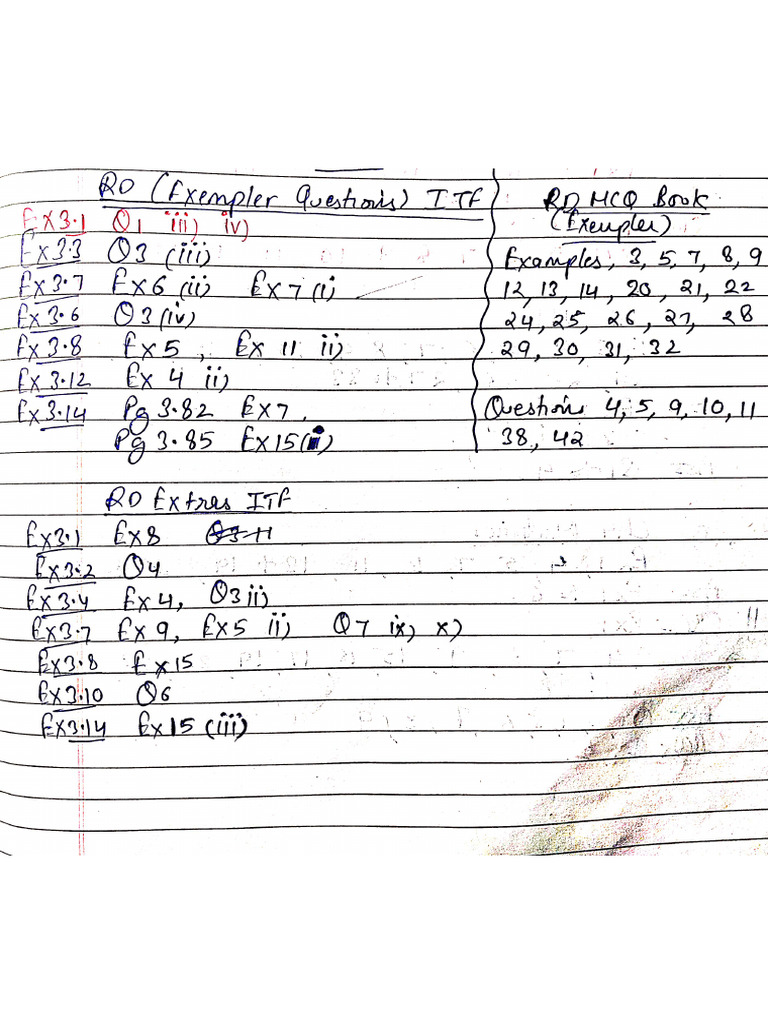 RD (Exempler Questions) ITF
Ex3.1 Q1 iii) iv)
Ex3.3 Q3 (iii)
Ex3.7 Ex6 (ii) Ex7 (i)
Ex3.6 Q3 (iv)
Ex3.8 Ex5 , Ex 11 ii)
Ex3.12 Ex 4 ii)
Ex3.14 Pg 3.82 Ex7,
Pg 3.85 Ex15(i)
RD MCQ Book
(Exempler)
Examples, 3, 5, 7, 8, 9
12, 13, 14, 20, 21, 22
24, 25, 26, 27, 28
29, 30, 31, 32
Questions 4, 5, 9, 10, 11
38, 42
RD Extras ITF
Ex3.1 Ex8
Ex3.2 Q4
Ex3.4 Ex4, Q3 ii)
Ex3.7 Ex9, Ex5 ii) Q7 ix) x)
Ex3.8 Ex15
Ex3.10 Q6
Ex3.14 Ex15 (iii)